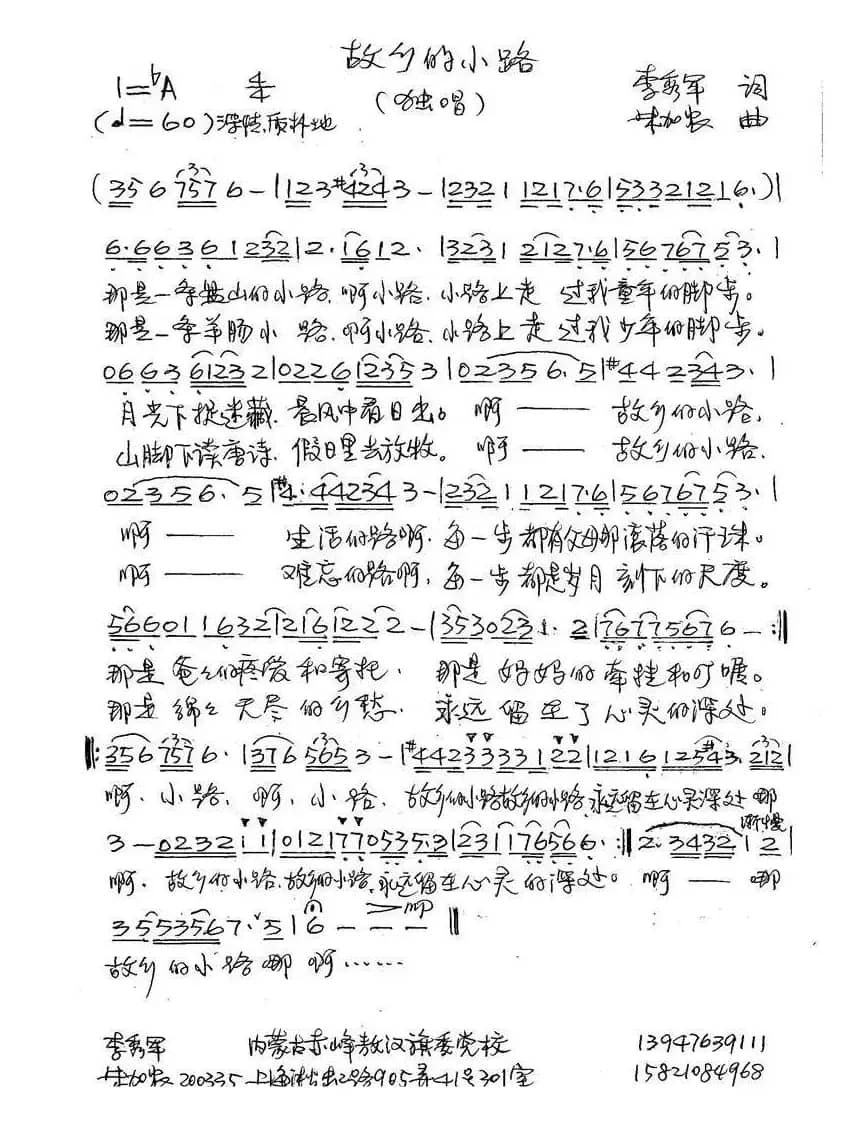 故乡的小路
1=♭A 4/4 (独唱) 李秀军 词
(♩=60) 深情、质朴地 朱加农 曲
(3 5 6 7 5 7 6 - | 1 2 3 #4 2 4 3 - | 2 3 2 1 1 2 1 7·6 | 5 3 3 2 1 2 1 6·) |
6·6 6 3 6 1 2 3 2 | 2·1 6 1 2· | 3 2 3 1 2 1 2 7·6 | 5 6 7 6 7 5 3· |
那是一条盘山的小路，啊小路，小路上走 过我童年的脚步。
那是一条羊肠小 路，啊小路，小路上走 过我少年的脚步。
0 6 6 3 6 1 2 3 2 | 0 2 2 6 1 2 3 5 3 | 0 2 3 5 6·5 | #4 4 2 3 4 3· |
月光下捉迷藏，晨风中看日出。 啊 —— 故乡的小路，
山脚下读唐诗，假日里去放牧。 啊 —— 故乡的小路，
0 2 3 5 6· 5 | #4·4 4 2 3 4 3 - | 2 3 2 1 1 2 1 7·6 | 5 6 7 6 7 5 3· |
啊 —— 生活的路啊，每一步都有父母那滚落的汗珠。
啊 —— 难忘的路啊，每一步都是岁月 刻下的尺度。
5 6 6 0 1 1 6 3 2 | 2 1 6 1 2 2 2 - | 3 5 3 0 2 3 1· 2 | 7 6 7 7 5 6 7 6 - :‖
那是爸爸的疼爱和寄托， 那是妈妈的牵挂和叮嘱。
那是绵绵无尽的乡愁， 永远留在了心灵的深处。
‖: 3 5 6 7 5 7 6· | 3 7 6 5 6 5 3 - | #4 4 2 3 3 3 3 1 2 2 | 1 2 1 6 1 2 5 #4 3· 2 1 2 |
啊，小路，啊，小路，故乡的小路故乡的小路，永远留在心灵深处 哪
渐慢
3 - 0 2 3 2 1 1 | 0 1 2 1 7 7 0 5 3 5·3 | 2 3 1 1 7 6 5 6 6· :‖ 2·3 4 3 2 1 2 |
啊，故乡的小路，故乡的小路，永远留在心灵的深处。 啊 —— 哪
3 5 5 3 5 6 7·ˇ5 | 6 - - - ‖
故乡的小路哪 啊……
李秀军 内蒙古赤峰敖汉旗委党校 13947639111
朱加农 200335 上海淞虹路905弄41号301室 15821084968